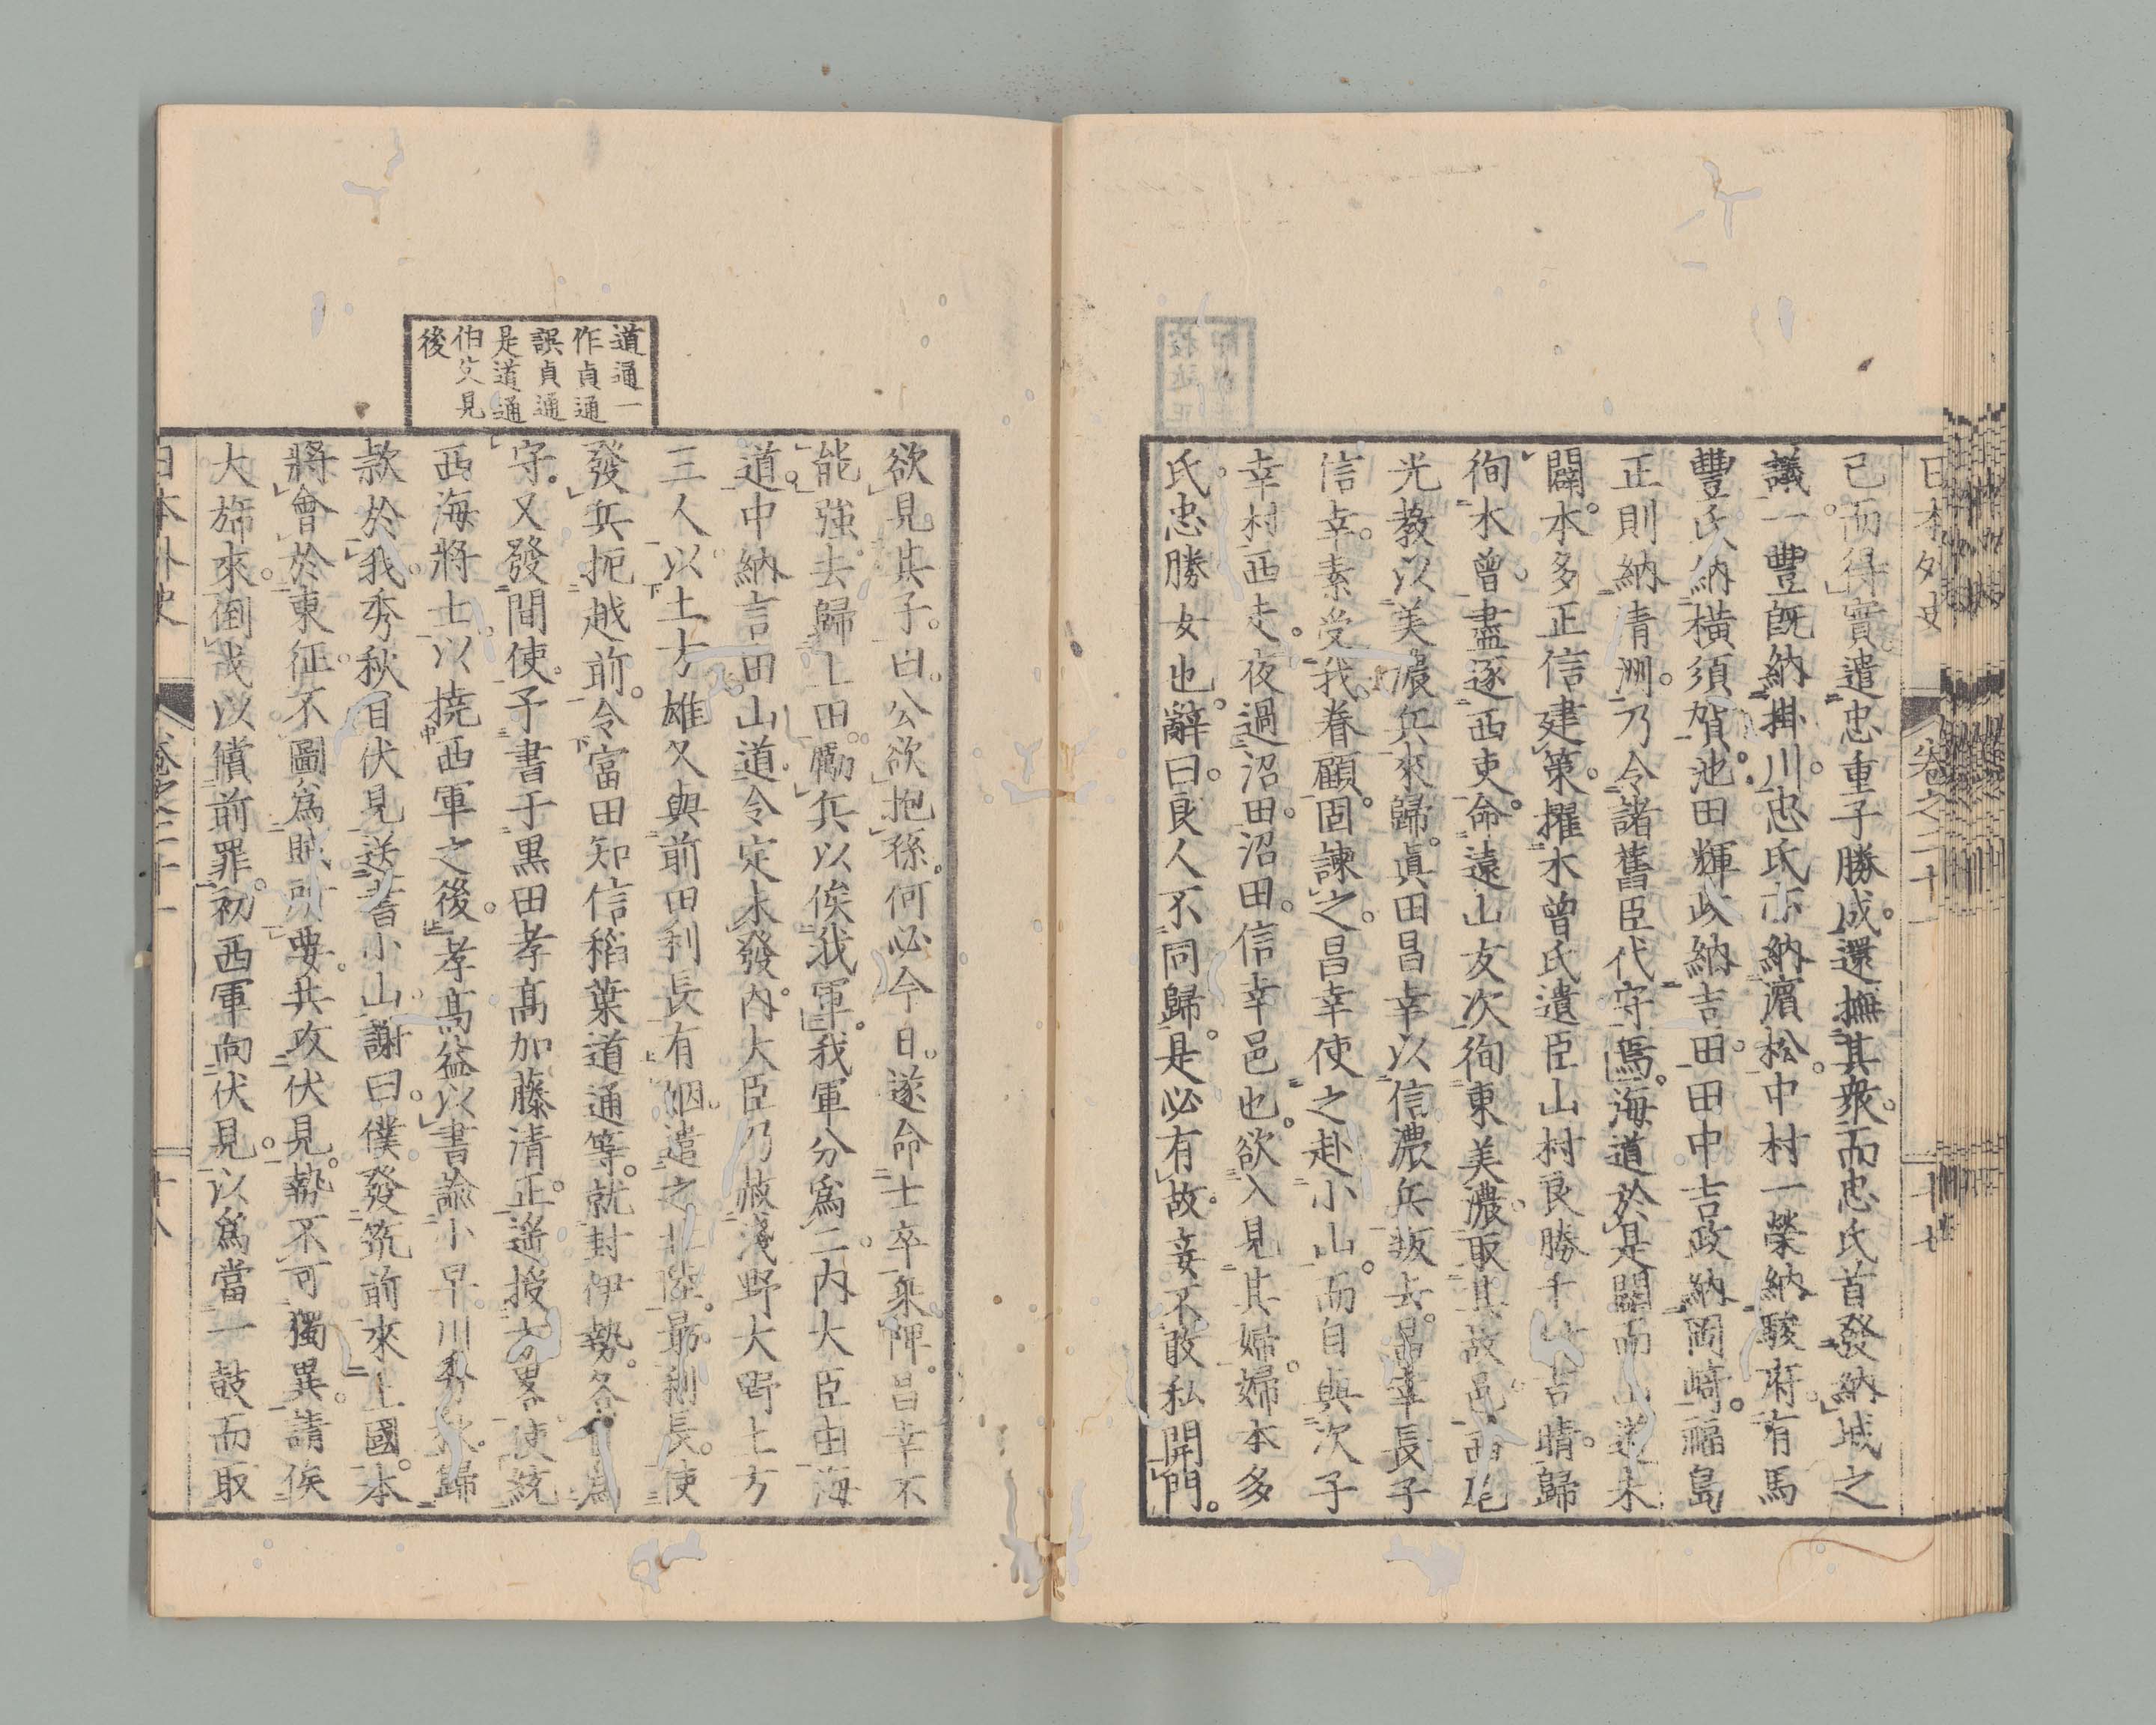 日本外史 卷之二十一 十七
已而得實遣忠重子勝成還撫其衆而忠氏首發納城之
議一豐既納掛川忠氏亦納濵松中村一榮納駿府有馬
豐氏納橫須賀池田輝政納吉田田中吉政納岡崎福島
正則納清洲乃令諸舊臣代守焉海道於是闢而山道未
闢本多正信建策擢木曾氏遺臣山村良勝千村吉晴歸
徇木曾盡逐西吏命遠山友次徇東美濃取其故邑西尾
光教以美濃兵來歸眞田昌幸以信濃兵叛去昌幸長子
信幸素受我眷顧固諫之昌幸使之赴小山而自與次子
幸村西走夜過沼田沼田信幸邑也欲入見其婦婦本多
氏忠勝女也辭曰良人不同歸是必有故妾不敢私開門
道通一
作貞通
誤貞通
是道通
伯父見
後
欲見其子曰公欲抱孫何必今日遂命士卒乘陴昌幸不
能強去歸上田勵兵以俟我軍我軍分爲二内大臣由海
道中納言由山道令定未發内大臣乃赦淺野大野土方
三人以土方雄久與前田利長有姻遣之北陸勗利長使
發兵扼越前令富田知信稻葉道通等就封伊勢各爲
守又發間使予書于黒田孝高加藤清正遙授方畧使統
西海將士以撓西軍之後孝高益以書諭小早川秀秋歸
款於我秀秋自伏見送書小山謝曰僕發筑前來上國本
將會於東征不圖爲賊所要共攻伏見勢不可獨異請俟
大旆來倒戈以償前罪初西軍向伏見以爲當一鼓而取
日本外史 卷之二十一 十八